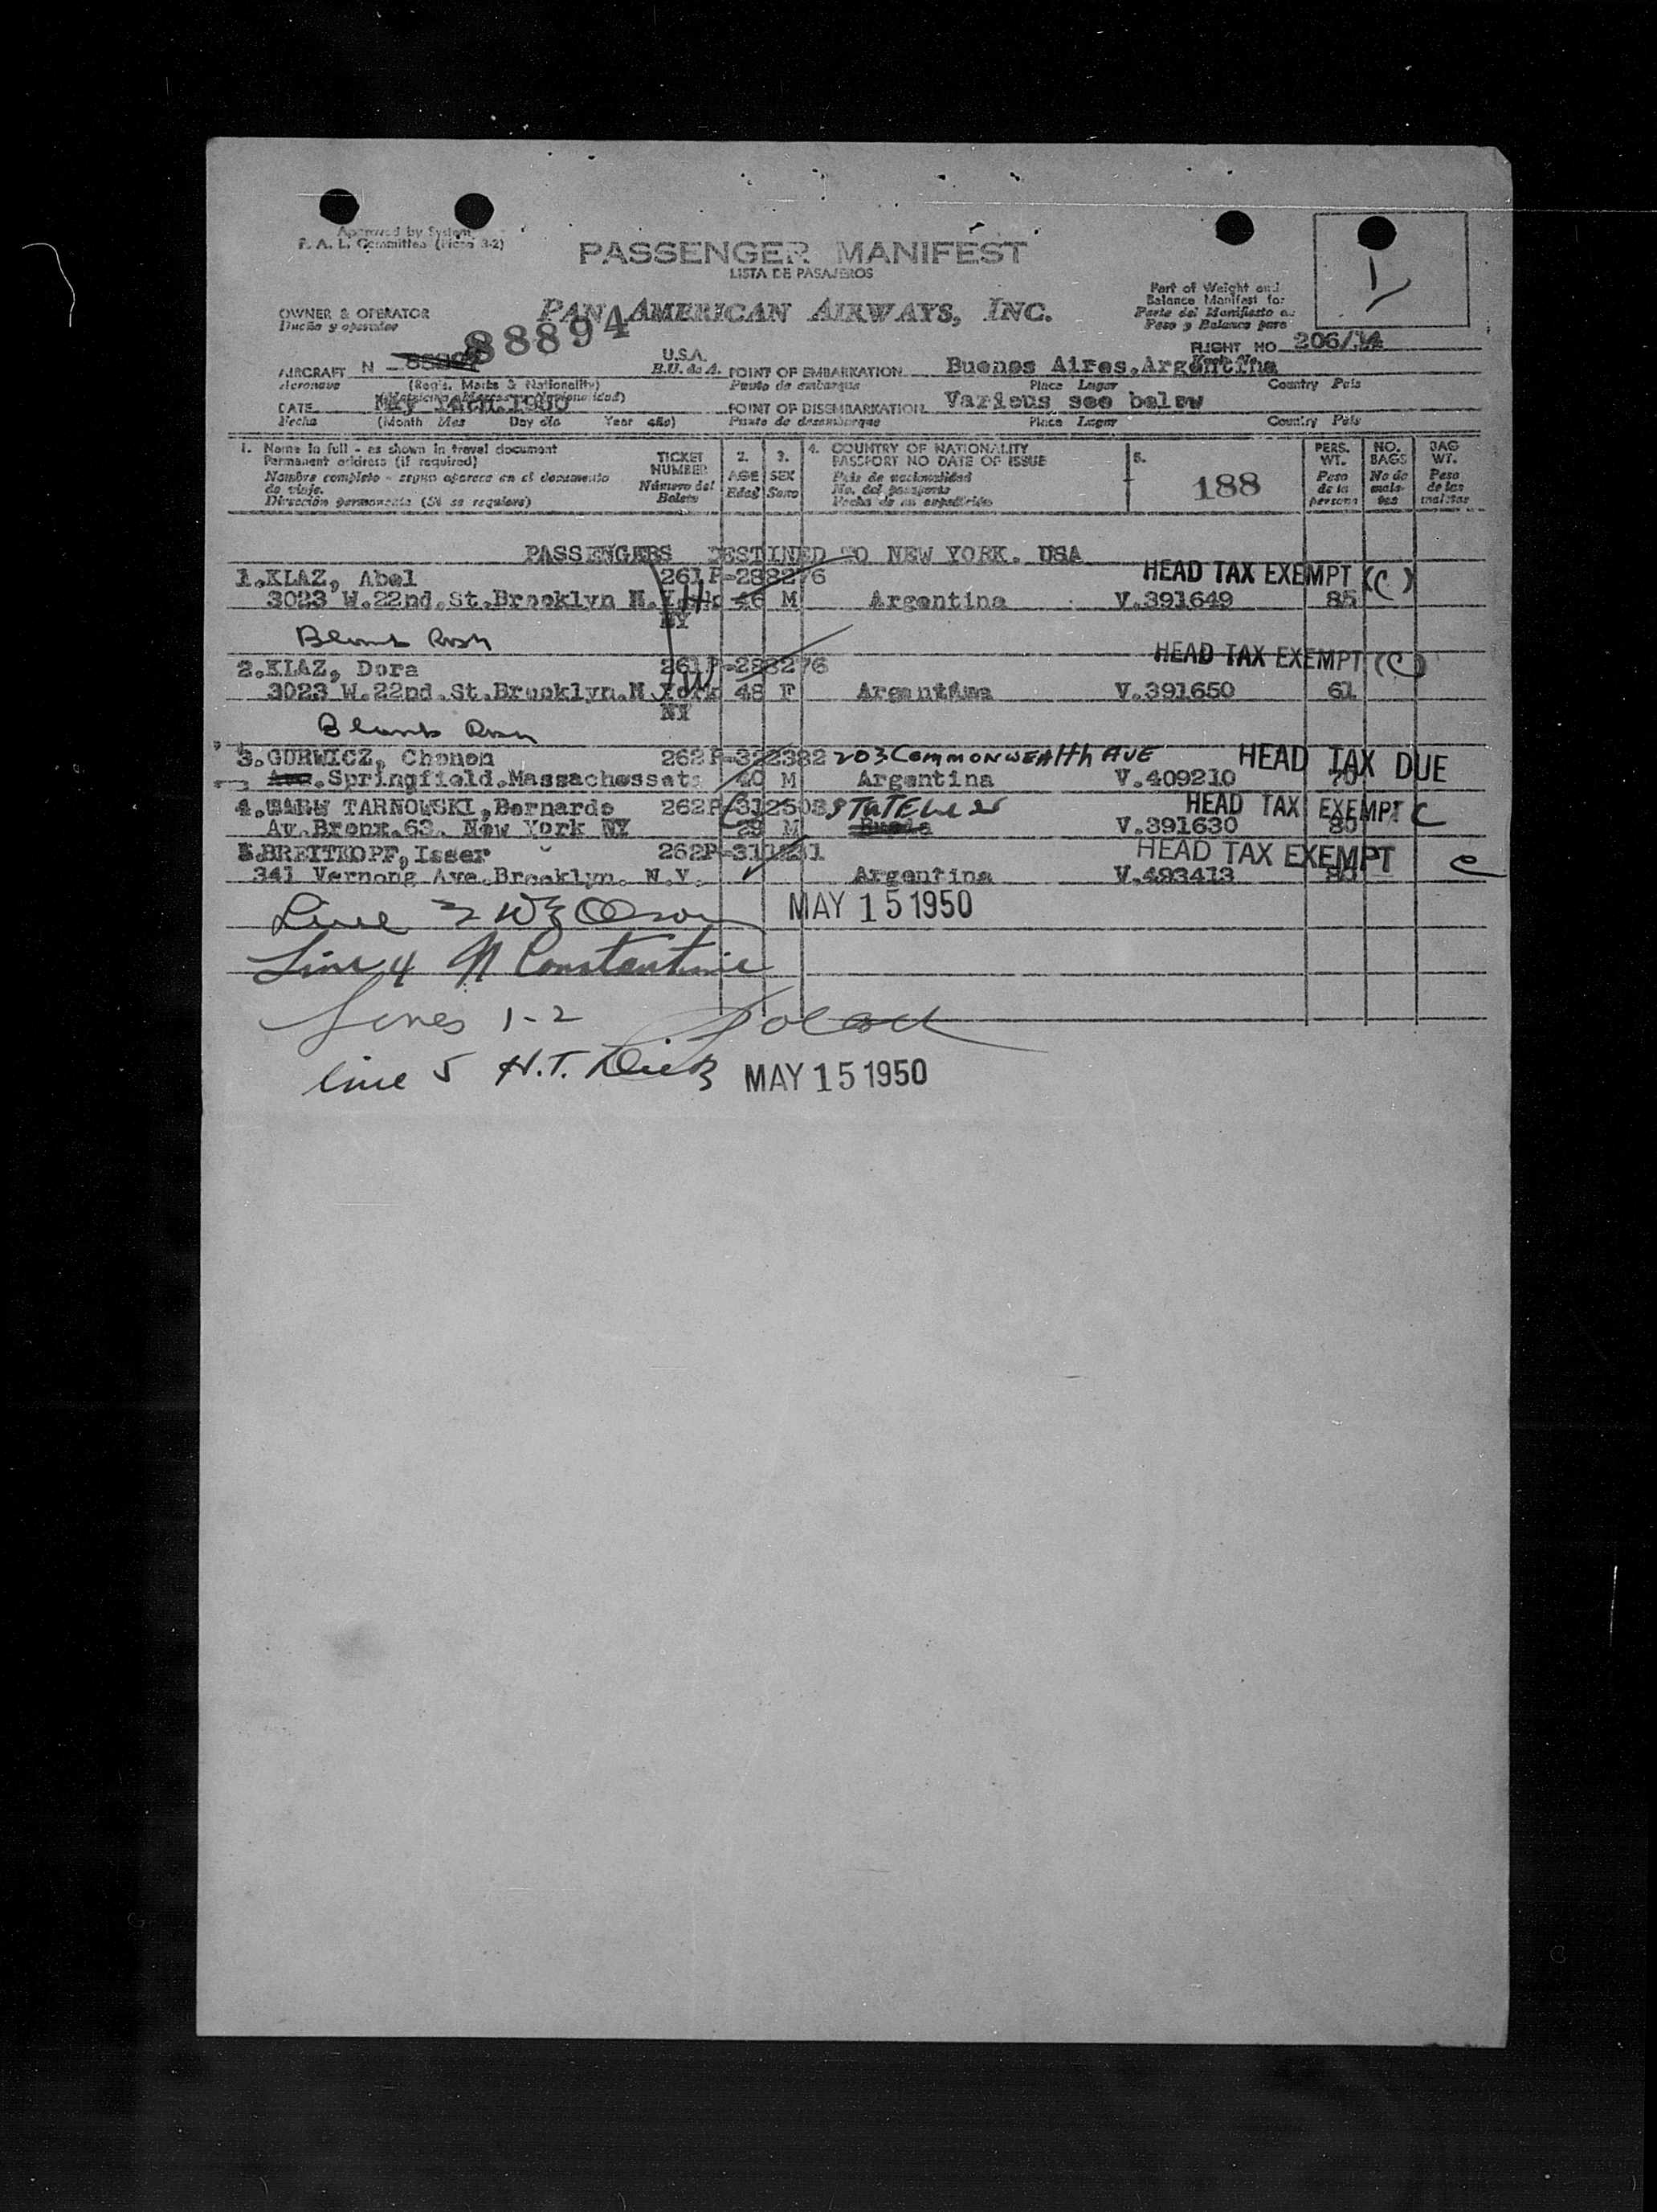 Approved by System
F. A. L. Committee (Picao 3-2)
PASSENGER MANIFEST
LISTA DE PASAJEROS
Part of Weight and
Balance Manifest for
Parte del Manifiesto de
Peso y Balance para
OWNER & OPERATOR
Dueño y operador
PAN AMERICAN AIRWAYS, INC.
88894
FLIGHT NO 206/14
AIRCRAFT N
Aeronave
(Reg's. Marks & Nationality)
U.S.A.
E.U. de A.
POINT OF EMBARKATION Buenos Aires, Argentina
Punto de embarque
Place Lugar
Country País
DATE May 14th. 1950
Fecha
(Month Mes Day día Year año)
POINT OF DISEMBARKATION Various see below
Punto de desembarque
Place Lugar
Country País
1. Name in full - as shown in travel document
Permanent address (if required)
Nombre completo - según aparece en el documento
de viaje.
Dirección permanente (Si se requiere)
TICKET
NUMBER
Número del
Boleto
2.
AGE
Edad
3.
SEX
Sexo
4. COUNTRY OF NATIONALITY
PASSPORT NO DATE OF ISSUE
País de nacionalidad
No. del pasaporte
Fecha de su expedición
5.
188
PERS.
WT.
Peso
de la
persona
NO.
BAGS
No de
male-
tas
BAG
WT.
Peso
de las
maletas
PASSENGERS DESTINED TO NEW YORK. USA
1.KLAZ, Abel 261P-288276 HEAD TAX EXEMPT (C)
3023 W.22nd.St.Brooklyn N.York 46 M Argentina V.391649 85
NY
2.KLAZ, Dora 261P-288276 HEAD TAX EXEMPT (C)
3023 W.22nd.St.Brooklyn.N York 48 F Argentina V.391650 61
NY
3.GURWICZ, Chonon 262P-322382 203 COMMONWEALTH AVE HEAD TAX DUE
Ave.Springfield.Massachossets 40 M Argentina V.409210 70
4. TARNOWSKI, Bernardo 262P-312508 STATELESS HEAD TAX EXEMPT C
Av.Bronx.63. New York NY 29 M V.391630 80
5.BREITKOPF, Isser 262P- HEAD TAX EXEMPT C
341 Vernong Ave.Brooklyn. N.Y. Argentina V.493413 80
Line 3 MAY 15 1950
Line 4 N Constantine
Lines 1-2
line 5 H.T. MAY 15 1950